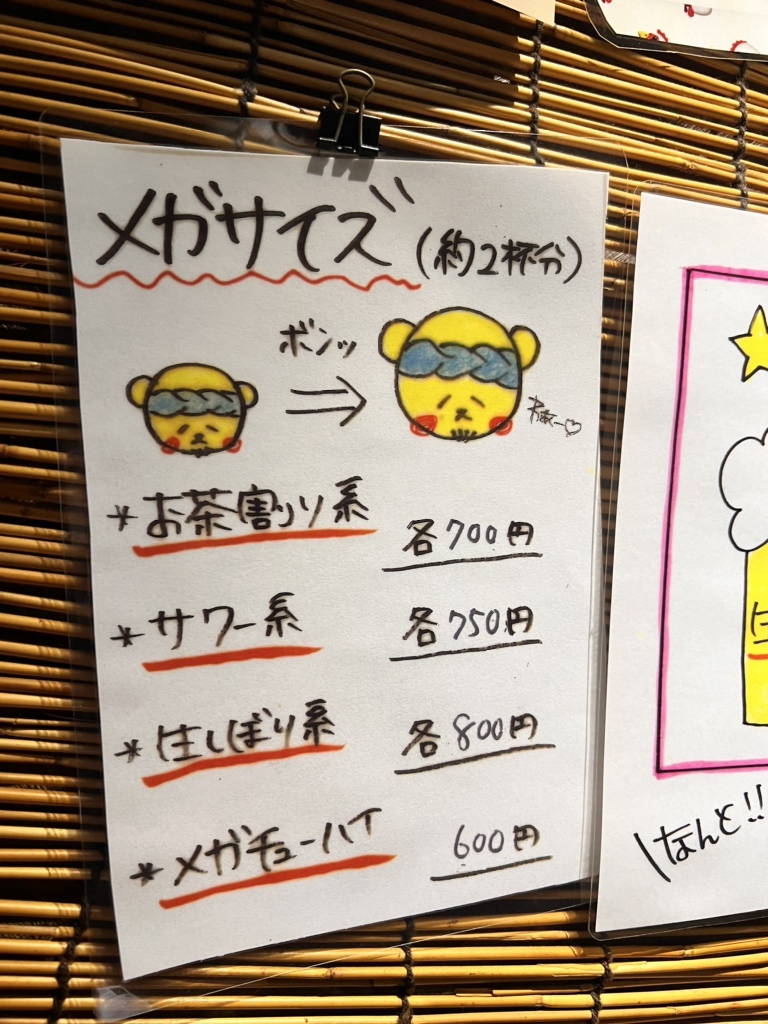 メガサイズ (約2杯分)
ボンッ
わぁー♡
*お茶割り系 各700円
*サワー系 各750円
*生しぼり系 各800円
*メガチューハイ 600円
\なんと!!